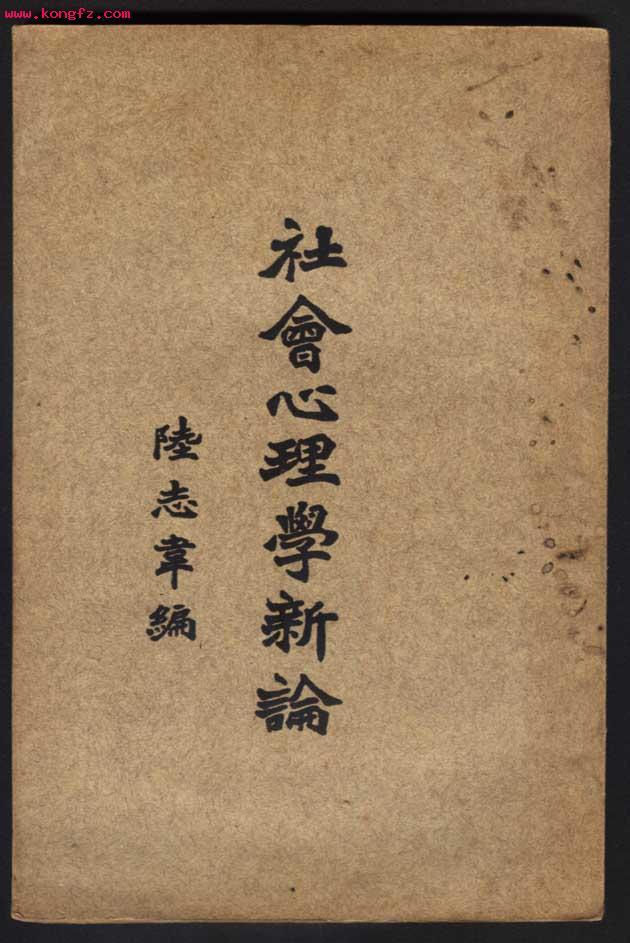 www.kongfz.com
社會心理學新論
陸志韋編